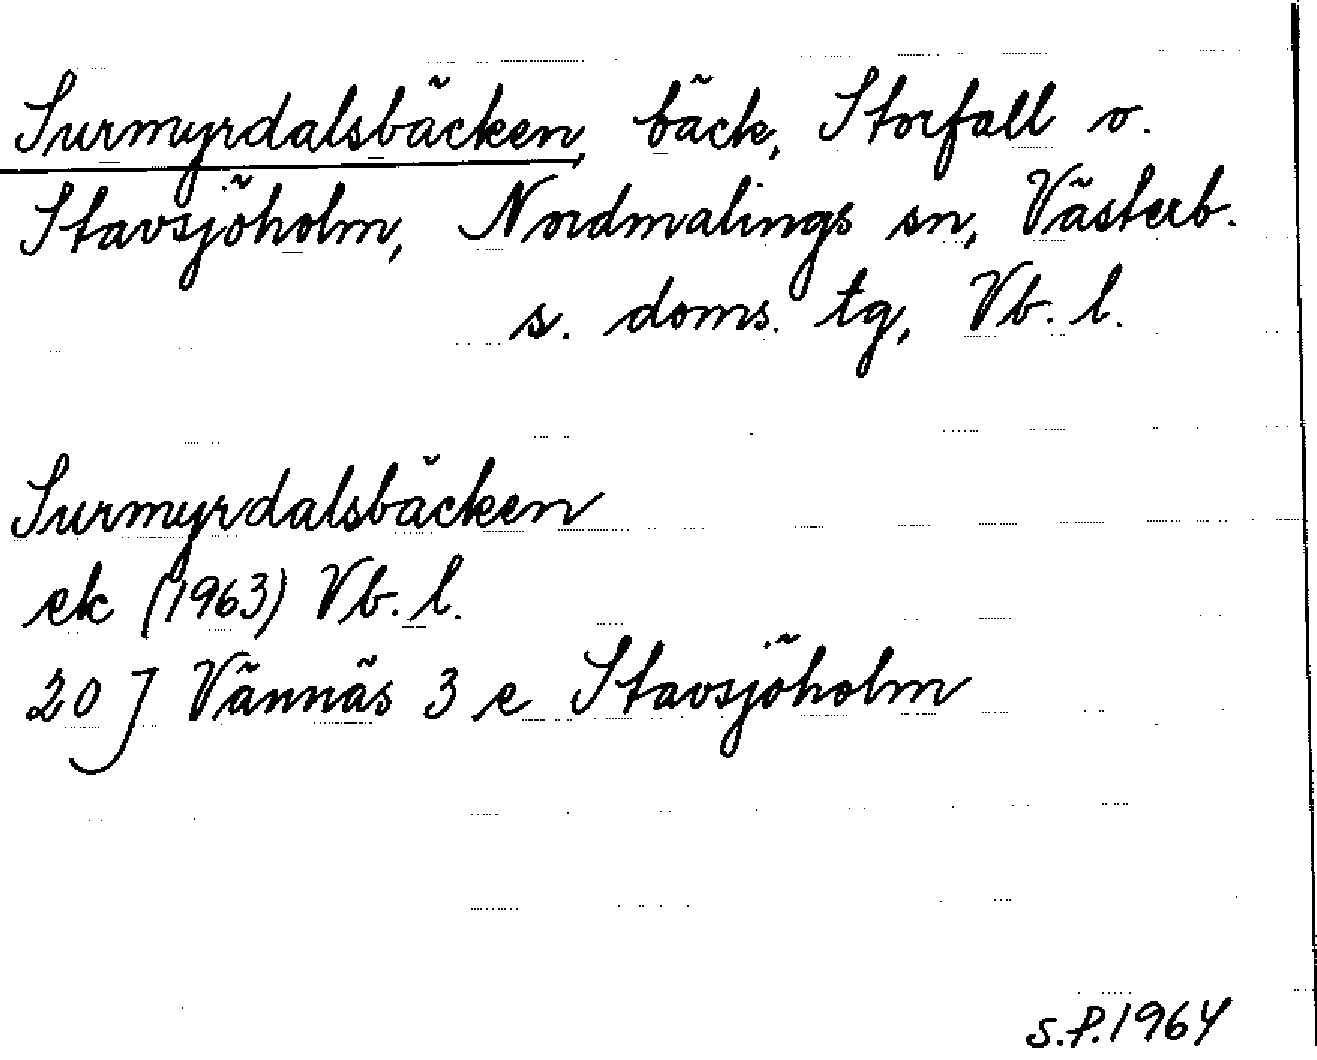 Surmyrdalsbäcken, bäck, Storfall o.
Stavsjöholm, Nordmalings sn, Västerb.
s. doms. tg, Vb. l.
Surmyrdalsbäcken
ek (1963) Vb. l.
20 J Vännäs 3 e Stavsjöholm
S.P. 1964